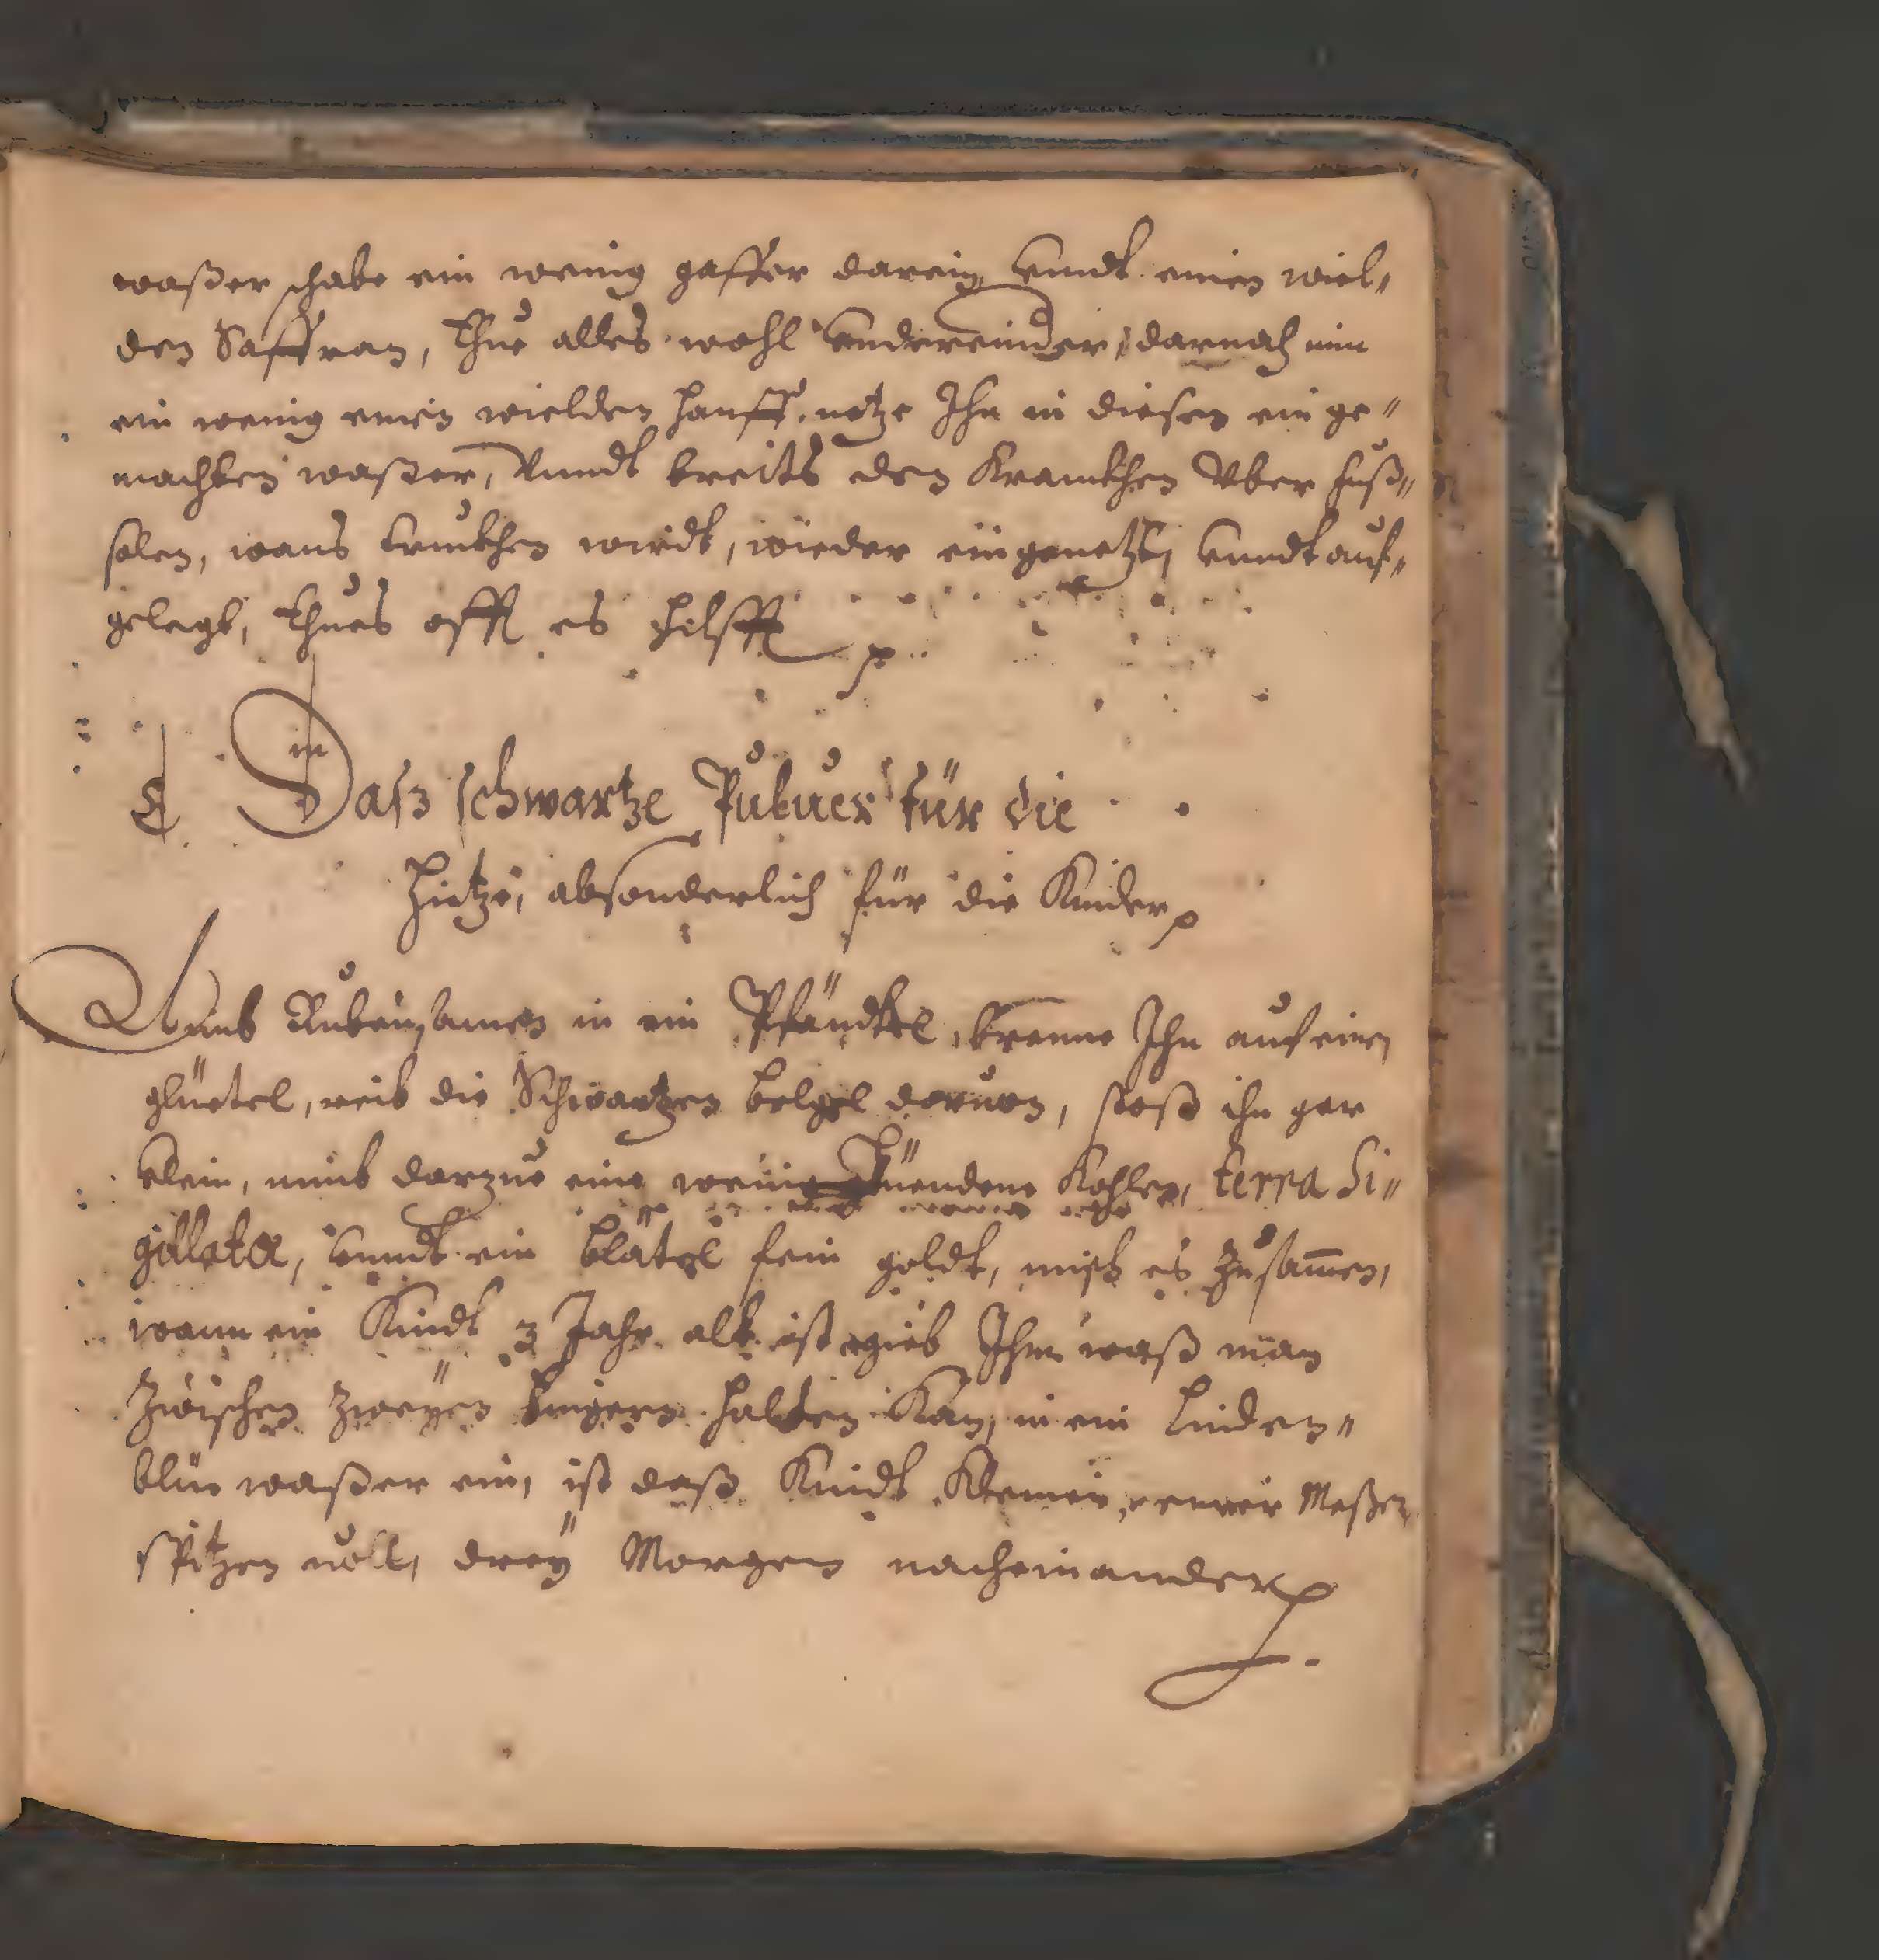 waßer schabe ein wenig gaffer darein, vnndt einen wiel„
den Saffran, thue alles wohl vndereinder, darnach nim
ein wenig einen wielden hanff, netze Ihn in diesen ein ge„
machten waßer, Vnndt breits den Krankhen Vber fuß„
solen, wans trukhen wirdt, wieder eingenetzt, vnndt auf„
gelegt, thues offt es hilfft
Daß schwartze Puluer für die
Hietze, absonderlich für die Kinder
Nimb Rubensamen in ein Pfändtel, brenne Ihn auf einen
glüetel, reib die Schwartzen belgel daruon, stoß ihn gar
klein, nimb darzue eine wenig Kohlen, terra Si„
gillata, vnndt ein blätel fein goldt, misch es Zusam̅en,
wann ein Kindt 3 Jahr alt ist gieb Ihm waß man
Zwischen Zweÿen fingern halten Kan, in ein Linden„
blüe waßer ein, ist daß Kindt Kleiner, Meßer
spitzen uoll, dreÿ Morgen nacheinander